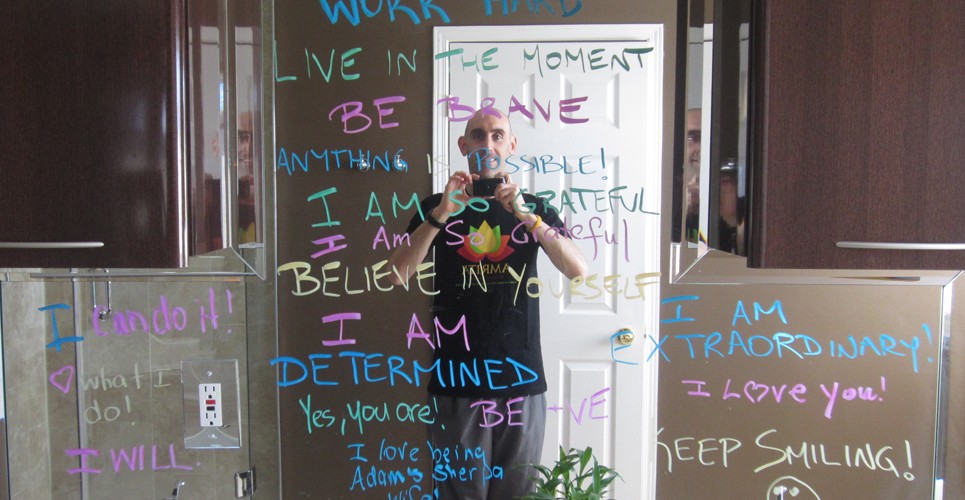 WORK HARD
LIVE IN THE MOMENT
BE BRAVE
ANYTHING IS POSSIBLE!
I AM SO GRATEFUL
I Am So Grateful
AMRITA
BELIEVE IN YOURSELF
I can do it!
I AM
I AM
EXTRAORDINARY!
DETERMINED
♡ what I
do!
I L♡ve you!
Yes, you are!
BE +VE
I WILL.
KEEP SMILING!
I love being
Adam's Sherpa
Wife!